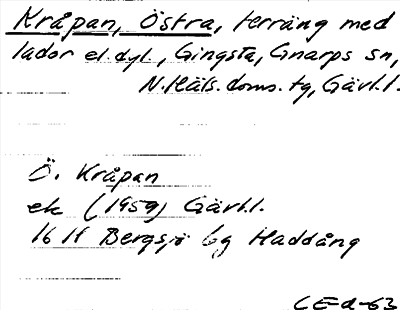 Kråpan, Östra, terräng med
lador el. dyl., Gingsta, Gnarps sn,
N. Häls. doms. tg, Gävl.l.
Ö. Kråpan
ek (1959) Gävl.l.
16 H Bergsjö 6g Haddång
CE-d-63